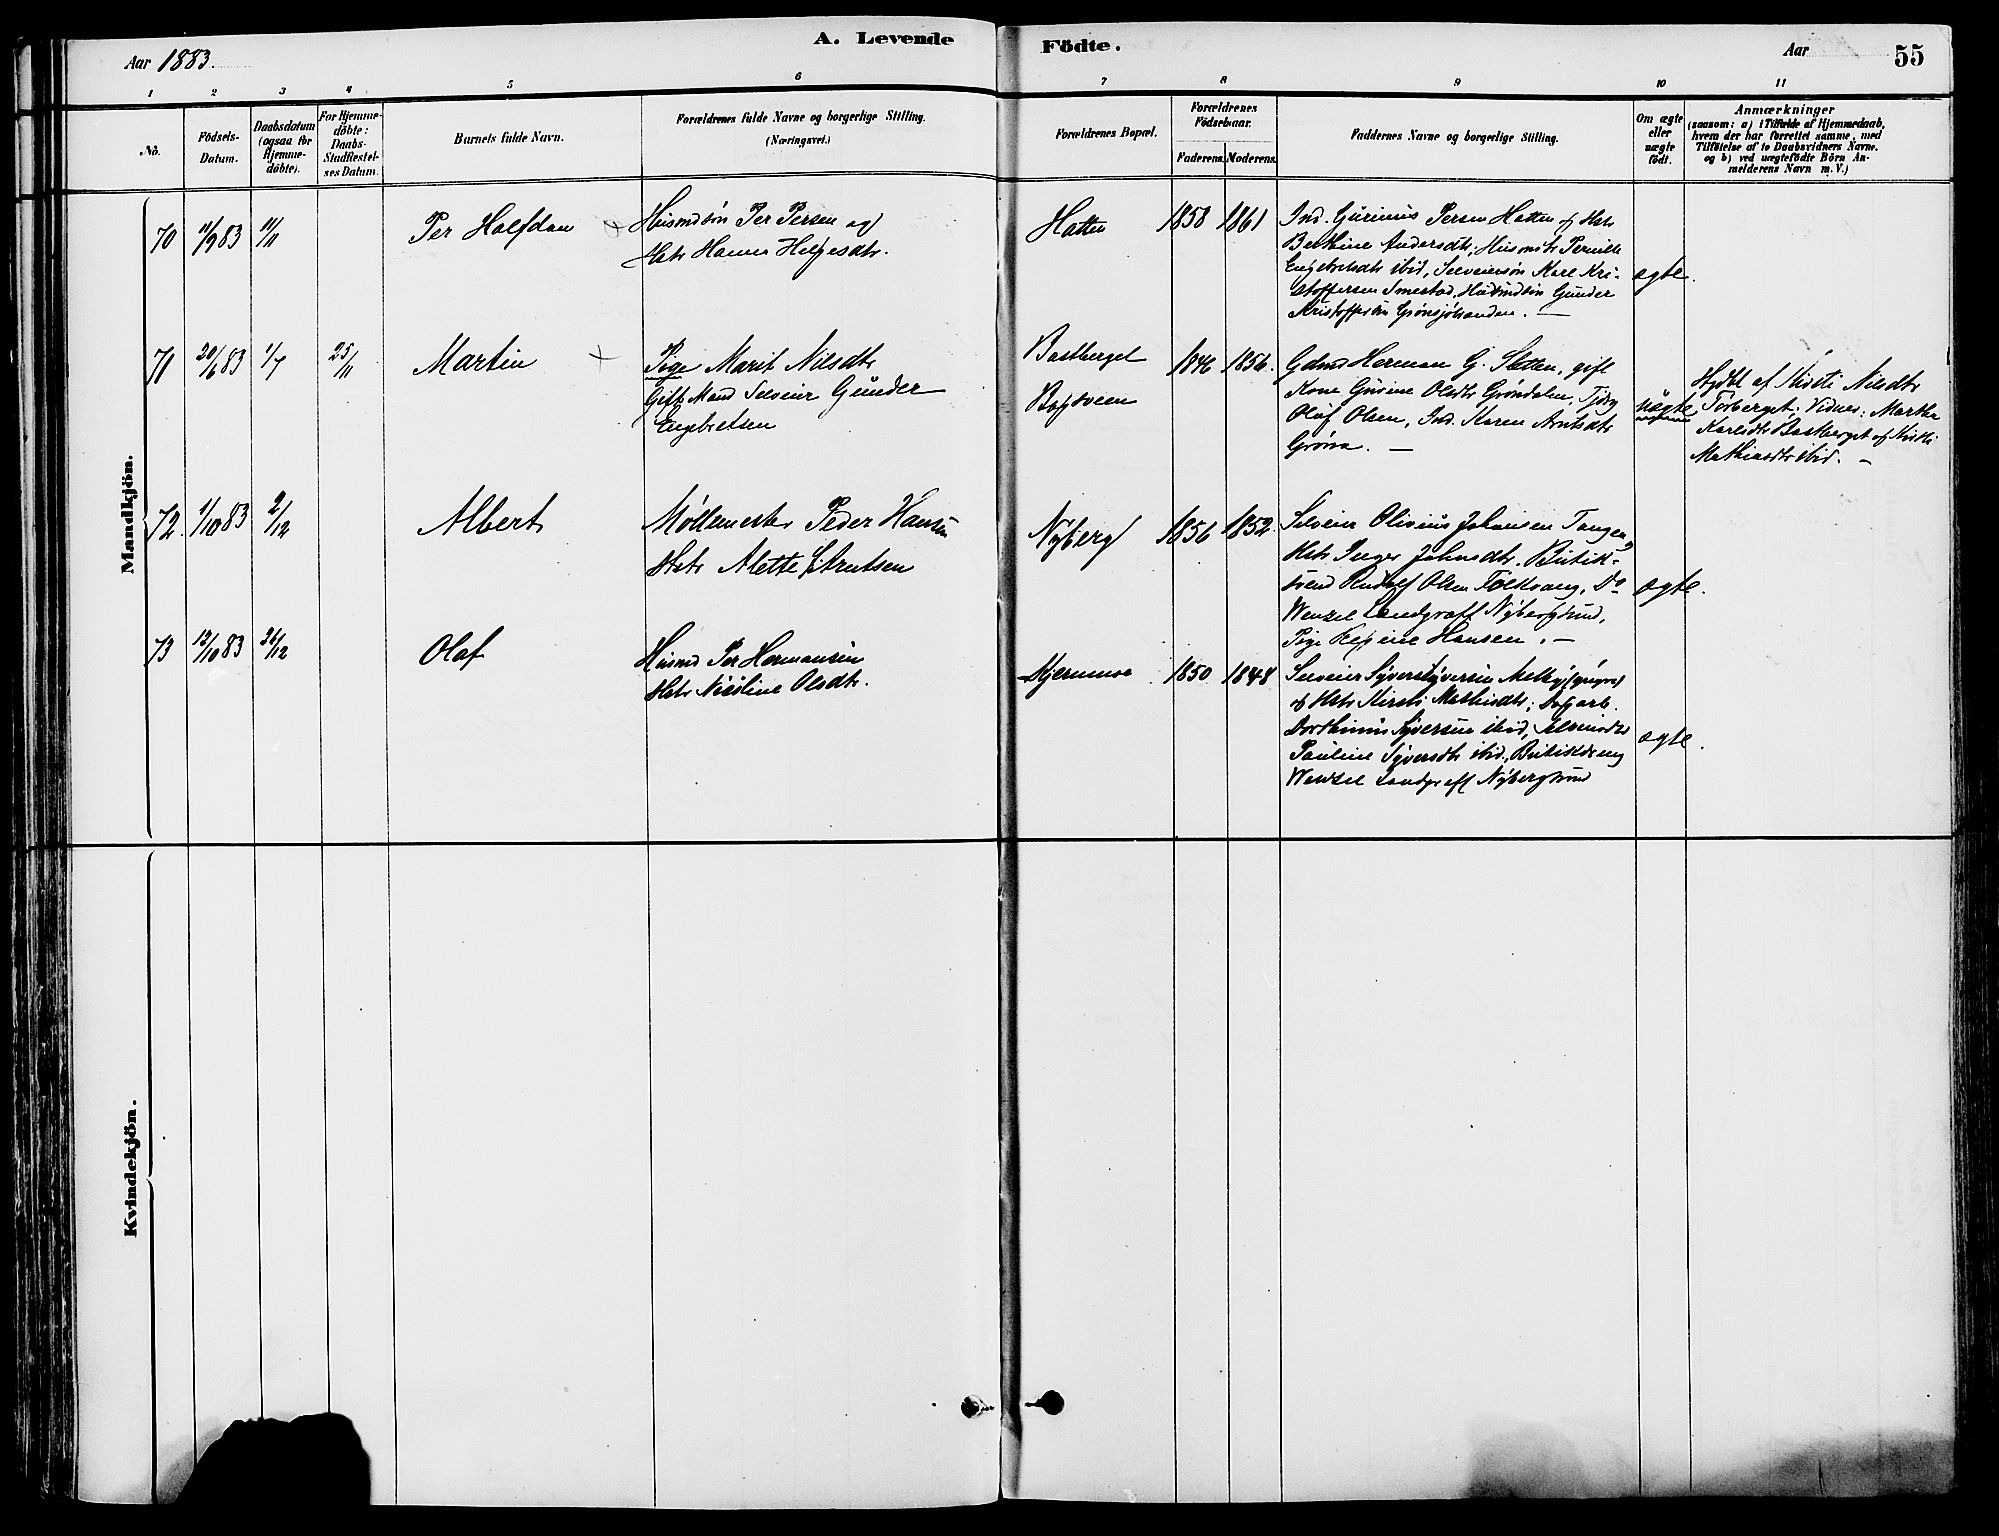 A. Levende Födte.
Aar 1883.
Aar
55
1 2 3 4 5 6 7 8 9 10 11
No.
Födsels-Datum.
Daabsdatum (ogsaa for Hjemme-döbte).
For Hjemme-döbte: Daabs-Stadfæstel-ses Datum.
Barnets fulde Navn.
Forældrenes fulde Navne og borgerlige Stilling.
(Næringsvei.)
Forældrenes Bopæl.
Forældrenes Födselsaar.
Faderens. Moderens.
Faddernes Navne og borgerlige Stilling.
Om ægte eller uægte födt.
Anmærkninger
(saasom: a) i Tilfælde af Hjemmedaab,
hvem der har forrettet samme, med
Tilföielse af to Daabsvidners Navne.
og b) ved uægtefödte Börn An-
melderens Navn m. V.)
Mandkjön.
70 11/9 83 11/11 Per Halfdan
Husmdsøn Per Persen og
Hstr Hanna Helgesdtr.
Hatten 1858 1861
Ind. Gurinius Persen Hatten og Hstr
Berthine Andersdtr; Husmdtr Pernille
Engebretsdtr ibid, Selveiersøn Karl Kri-
stoffersen Smestad, Husmdsøn Gunder
Kristoffersen Grønsjøhanden. —
ægte.
71 20/6 83 1/7 25/11 Martin +
Pige Marit Nilsdtr
Gift Mand Selveier Gunder
Engebretsen
Bastberget
1846 1856.
Gdmd Herman G. Sletten, gift
Kone Gurine Olsdtr Grøndalen, Tjdrg
Olaf Olsen, Ind. Karen Arntsdtr
Grøna. —
uægte
Hjdbt af Kirsti Nilsdtr
Torberget; Vidner: Marthe
Karlsdtr Bastberget og Kirsti
Mathiasdtr ibid. —
72. 1/10 83 2/12 Albert
Møllemester Peder Hansen
Hstr Alette Arntsen
Nyberg 1856 1852
Selveier Olivius Johansen Tangen og
Hstr Inger Johnsdtr. Butik-
svend Rudolf Olsen Folkvang, Do
Wenzel Landgraff Nybergsund,
Pige Hansen. —
ægte.
73 12/10 83 26/12 Olaf
Husmd Per Hermansen
Hstr Nicoline Olsdtr.
1850 1848
Selveier Syver Syversen
og Hstr Kirsti Mathisdtr; Dagarb.
Syversen ibid, Selveierdtr
Pauline Syversdtr ibid, Butikdreng
Wenzel Landgraff Nybergsund
ægte.
Kvindekjön.